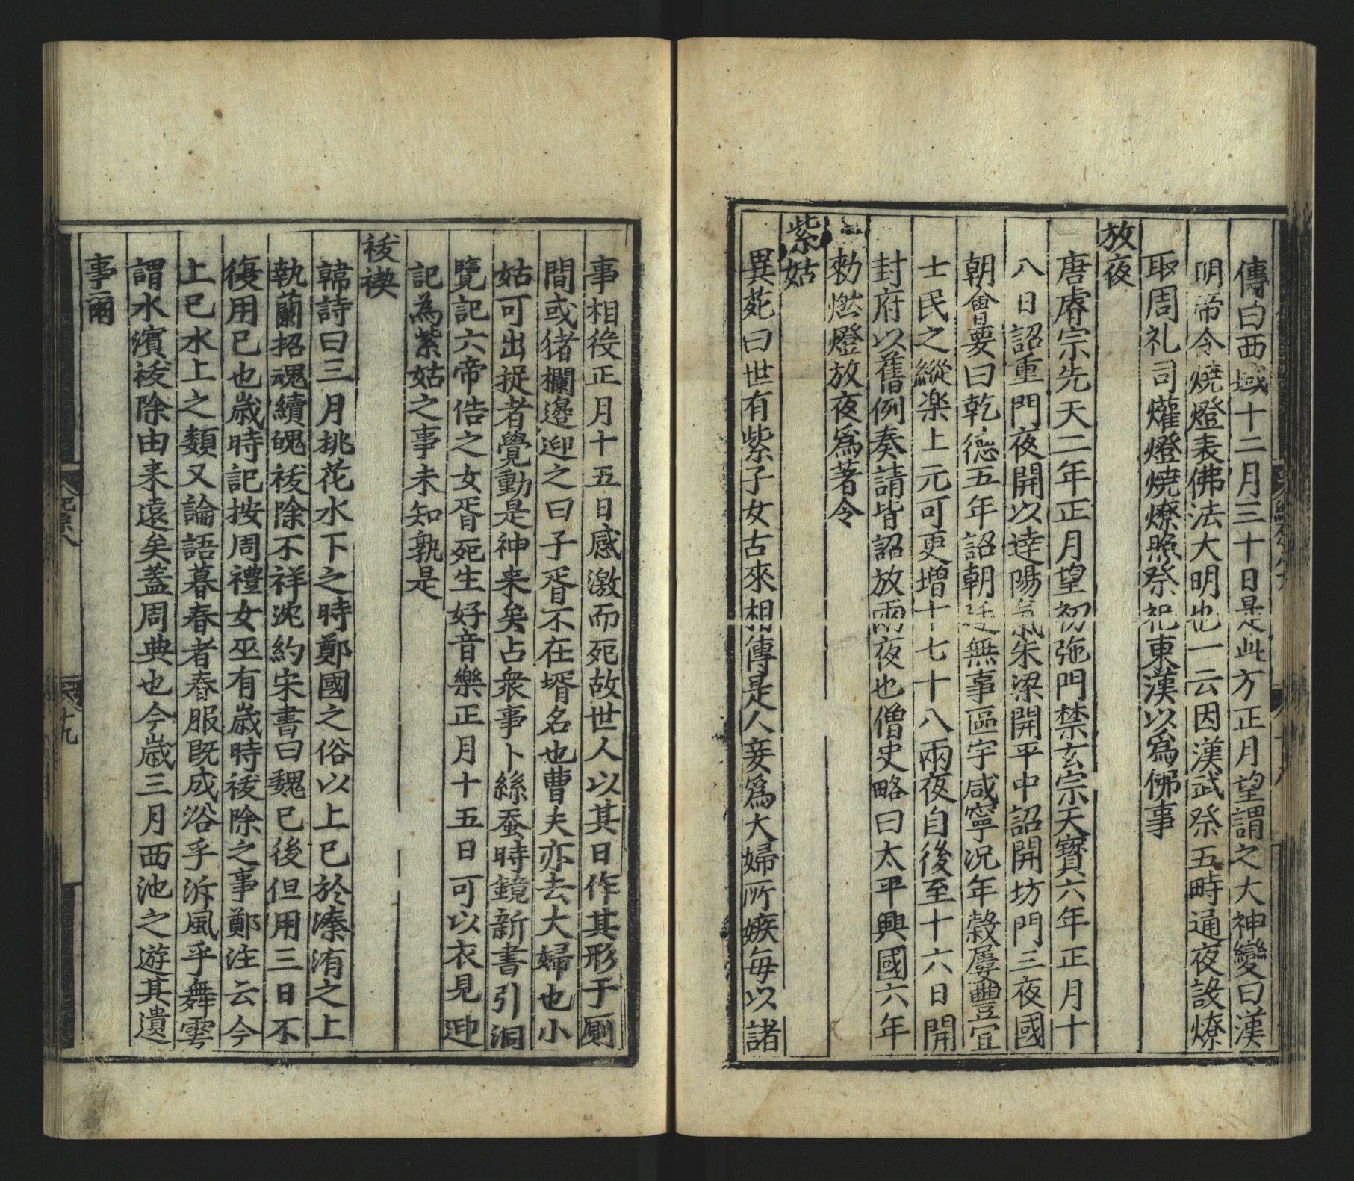 傳曰西域十二月三十日是此方正月望謂之大神變曰漢
明帝令燒燈表佛法大明也一云因漢武祭五畤通夜設燎
取周礼司爟燈燒燎照祭祀東漢以爲佛事
放夜
唐睿宗先天二年正月望初弛門禁玄宗天寶六年正月十
八日詔重門夜開以達陽氣朱梁開平中詔開坊門三夜國
朝會要曰乾德五年詔朝廷無事區宇咸寧况年穀屢豐宜
士民之縱楽上元可更增十七十八兩夜自後至十六日開
封府以舊例奏請皆詔放兩夜也僧史略曰太平興國六年
敕燃燈放夜爲著令
紫姑
異苑曰世有紫子女古來相傳是人妾爲大婦所嫉每以諸
事相役正月十五日感激而死故世人以其日作其形于厠
間或猪欄邊迎之曰子胥不在壻名也曹夫亦去大婦也小
姑可出捉者覺動是神来矣占衆事卜絲蚕時鏡新書引洞
覽記六帝俈之女胥死生好音樂正月十五日可以衣見迎
記為紫姑之事未知孰是
祓禊
韓詩曰三月桃花水下之時鄭國之俗以上巳於溱洧之上
執蘭招魂續魄祓除不祥沈約宋書曰魏已後但用三日不
復用巳也歳時記按周禮女巫有歳時祓除之事鄭注云今
上巳水上之類又論語暮春者春服既成浴乎沂風乎舞雩
謂水濱祓除由来遠矣蓋周典也今歳三月西池之遊其遺
事爾
十九